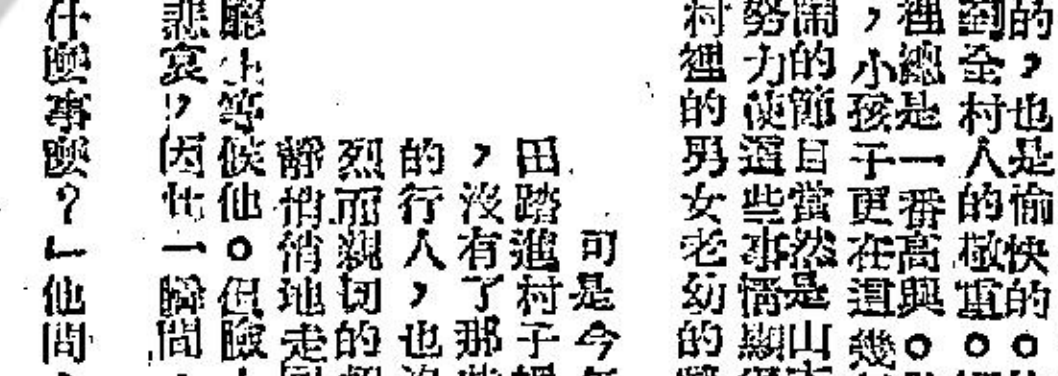 的，也是愉快的。
到全村人的敬重。
裡總是一番高興。
，小孩子更在這幾
鬧的節目當然是山
努力使這些事情顯
村裡的男女老幼的
可是今
田踏進村子
，沒有了那
的行人，也
烈而親切的
靜悄悄地走
廳上等候他。但臉
悲哀，因此一瞬間
什麼事麼？」他問